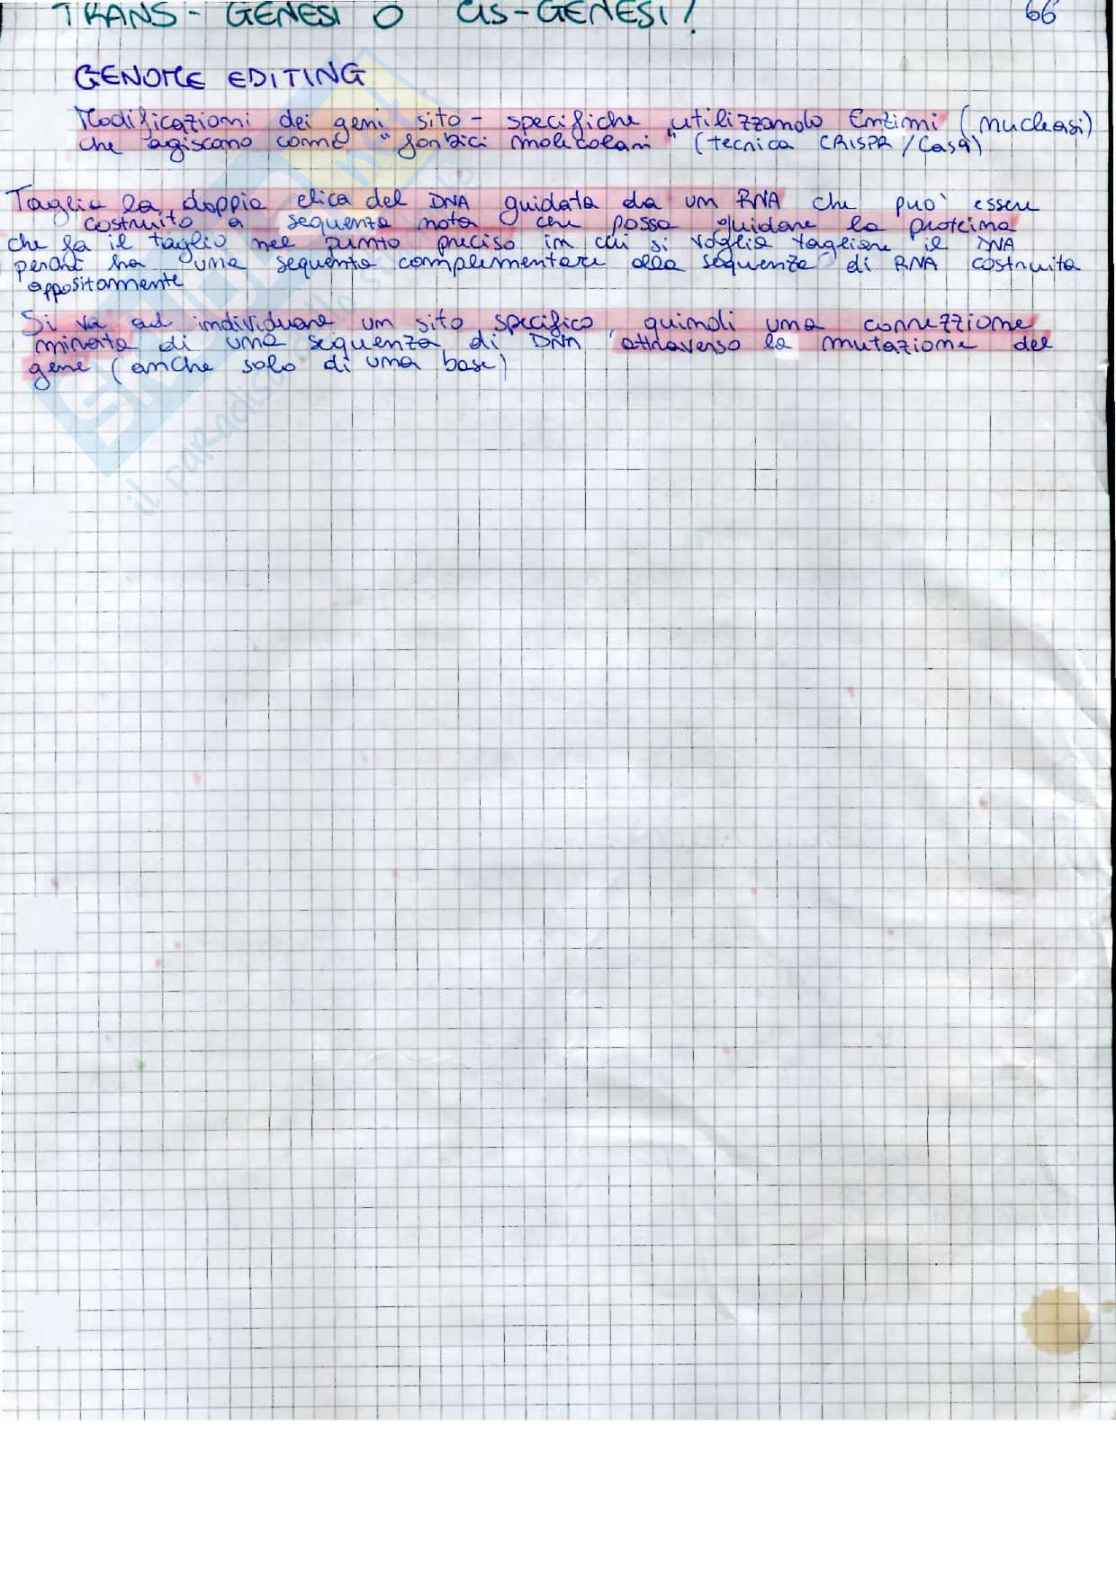 TRANS - GENESI O CIS-GENESI?
66
GENOME EDITING
Modificazioni dei geni sito - specifiche utilizzando Enzimi (nucleasi)
che agiscano come "forbici molecolari" (tecnica CRISPR/Cas9)
Taglia la doppia elica del DNA guidata da un RNA che può essere
costruito a sequenza nota che possa guidare la proteina
che fa il taglio nel punto preciso in cui si voglia tagliare il DNA
perché ha una sequenza complementare alla sequenza di RNA costruita
appositamente
Si va ad individuare un sito specifico, quindi una correzzione
mirata di una sequenza di DNA attraverso la mutazione del
gene (anche solo di una base)
il parad